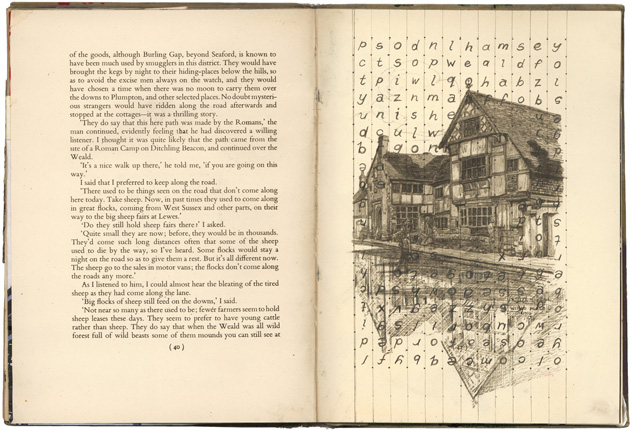 of the goods, although Burling Gap, beyond Seaford, is known to
have been much used by smugglers in this district. They would have
brought the kegs by night to their hiding-places below the hills, so
as to avoid the excise men always on the watch, and they would
have chosen a time when there was no moon to carry them over
the downs to Plumpton, and other selected places. No doubt mysteri-
ous strangers would have ridden along the road afterwards and
stopped at the cottages—it was a thrilling story.
'They do say that this here path was made by the Romans,' the
man continued, evidently feeling that he had discovered a willing
listener. I thought it was quite likely that the path came from the
site of a Roman Camp on Ditchling Beacon, and continued over the
Weald.
'It's a nice walk up there,' he told me, 'if you are going on this
way.'
I said that I preferred to keep along the road.
'There used to be things seen on the road that don't come along
here today. Take sheep. Now, in past times they used to come along
in great flocks, coming from West Sussex and other parts, on their
way to the big sheep fairs at Lewes.'
'Do they still hold sheep fairs there?' I asked.
'Quite small they are now; before, they would be in thousands.
They'd come such long distances often that some of the sheep
used to die by the way, so I've heard. Some flocks would stay a
night on the road so as to give them a rest. But it's all different now.
The sheep go to the sales in motor vans; the flocks don't come along
the roads any more.'
As I listened to him, I could almost hear the bleating of the tired
sheep as they had come along the lane.
'Big flocks of sheep still feed on the downs,' I said.
'Not near so many as there used to be; fewer farmers seem to hold
sheep leases these days. They seem to prefer to have young cattle
rather than sheep. They do say that when the Weald was all wild
forest full of wild beasts some of them mounds you can still see at
(40)
p s o d n l h a m s e y
c t s o p w e a l d f o
t p i w l q o h a b z l
y a z n m a